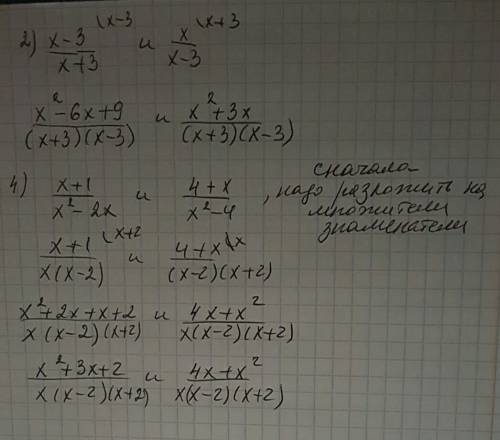 2) (x-3)/(x+3) \(x-3 и x/(x-3) \(x+3
(x²-6x+9)/((x+3)(x-3)) и (x²+3x)/((x+3)(x-3))
4) (x+1)/(x²-2x) и (4+x)/(x²-4), сначала надо разложить на множители знаменатели
(x+1)/(x(x-2)) \(x+2 и (4+x)/((x-2)(x+2)) \x
(x²+2x+x+2)/(x(x-2)(x+2)) и (4x+x²)/(x(x-2)(x+2))
(x²+3x+2)/(x(x-2)(x+2)) и (4x+x²)/(x(x-2)(x+2))